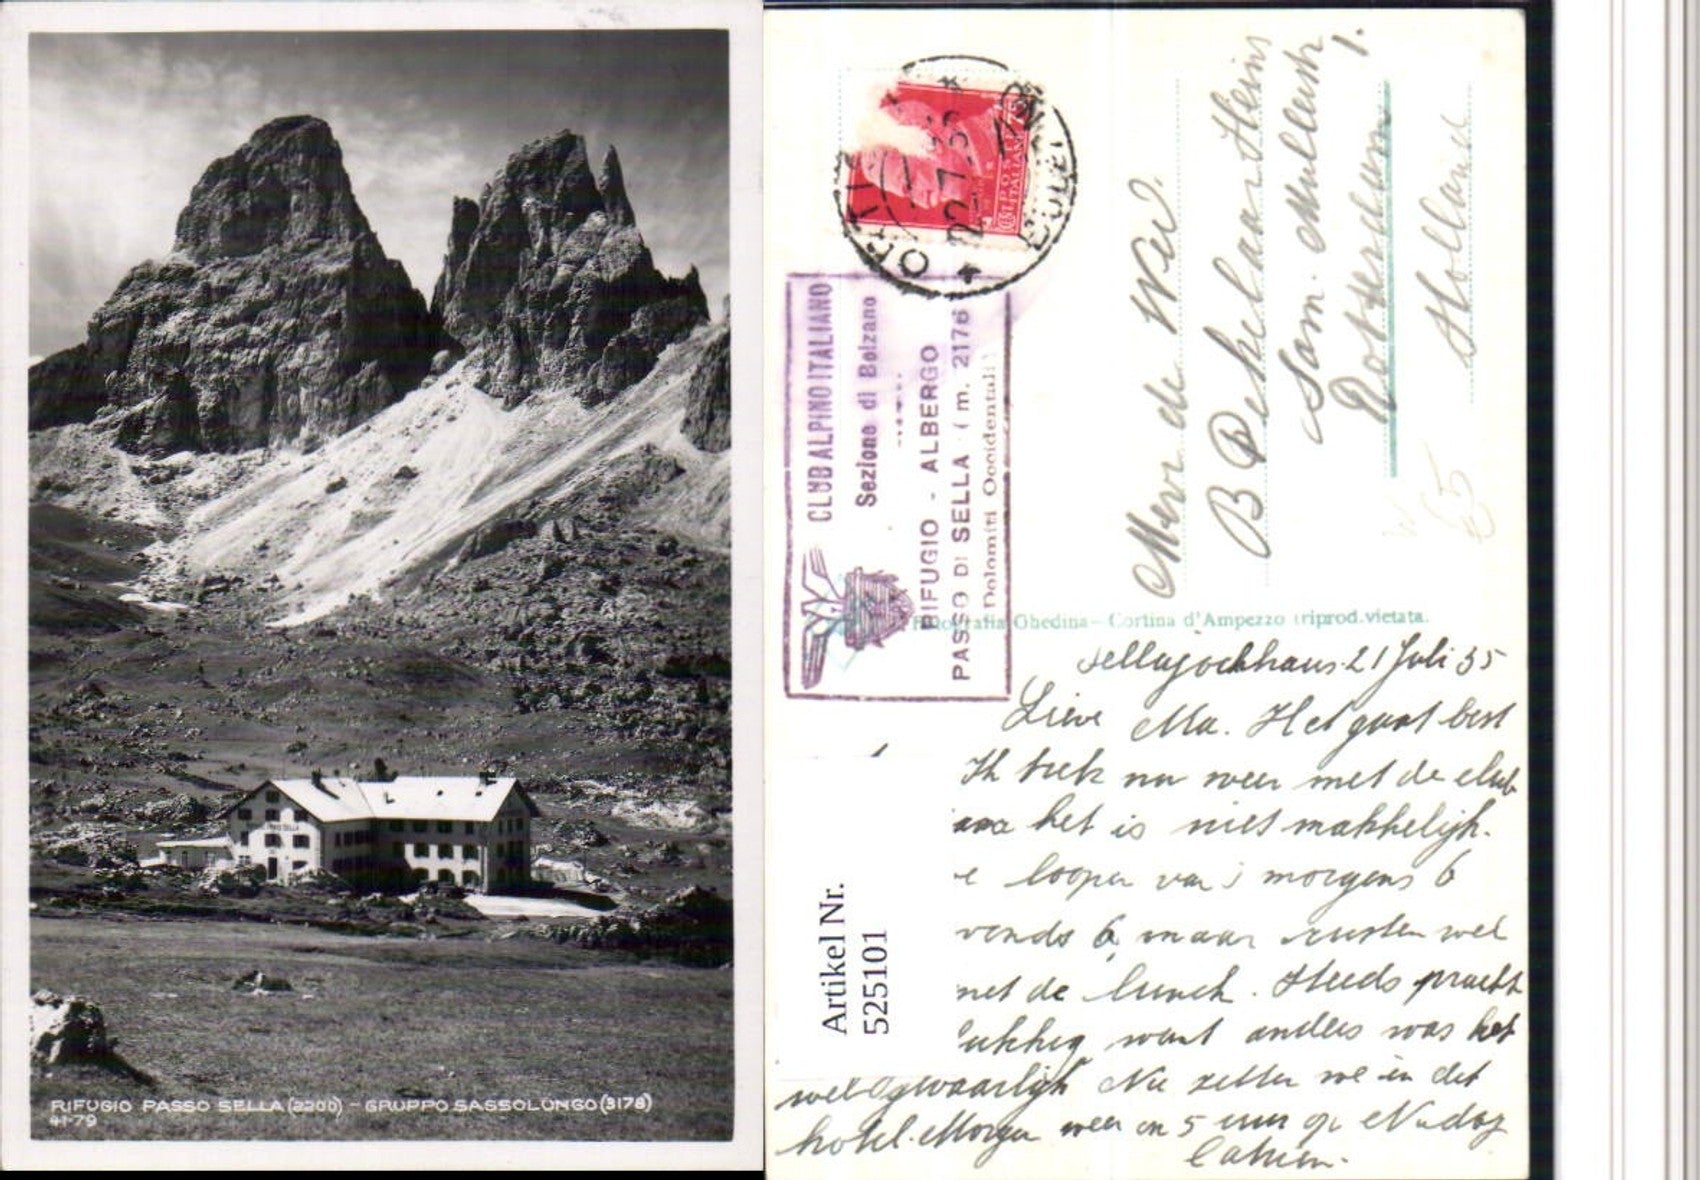 PASSO SELLA
RIFUGIO PASSO SELLA (2200) - GRUPPO SASSOLUNGO (3178)
41-79
ORTISEI
22.7.35
POSTE ITALIANE
CLUB ALPINO ITALIANO
Sezione di Bolzano
RIFUGIO - ALBERGO
PASSO DI SELLA (m. 2176
Dolomiti Occidentali
Mevr de Wed.
B Pekelaar Heins
Sam. Mullerstr 1.
Rotterdam
Holland
65
Fotografia Ghedina - Cortina d'Ampezzo (riprod. vietata.
Sellajochhaus 21 Juli 35
Lieve Ma. Het gaat best
Ik trek nu weer met de club
het is niet makkelijk.
e loopen van 's morgens 6
vonds 6, maar rusten wel
met de lunch. Steeds pracht
ukkig want anders was het
wel gevaarlijk Nu zitten we in dit
hotel. Morgen weer om 5 uur op Nu dag
Artikel Nr.
525101